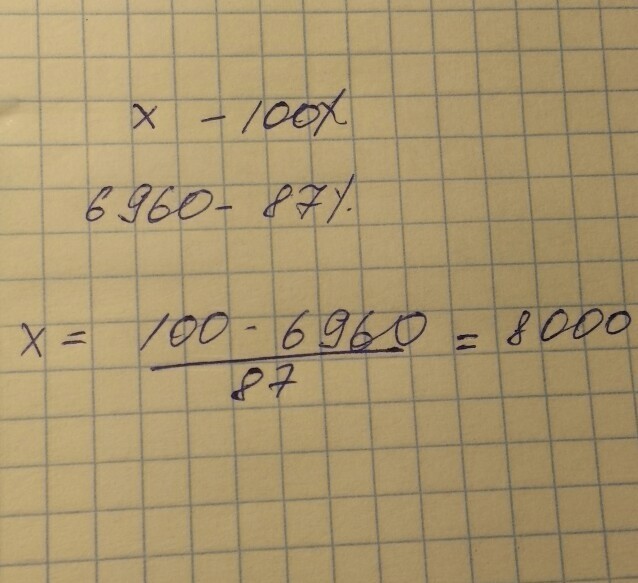 x - 100%
6960 - 87%
x = 100 · 6960 / 87 = 8000